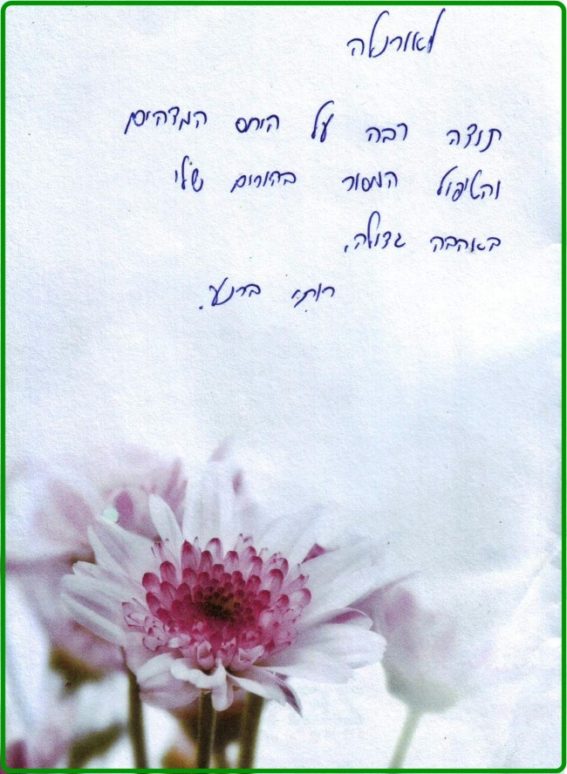 לאורנלה
תודה רבה על היחס המדהים
והטיפול המסור בהורים שלי
באהבה גדולה,
רותי ברנע.